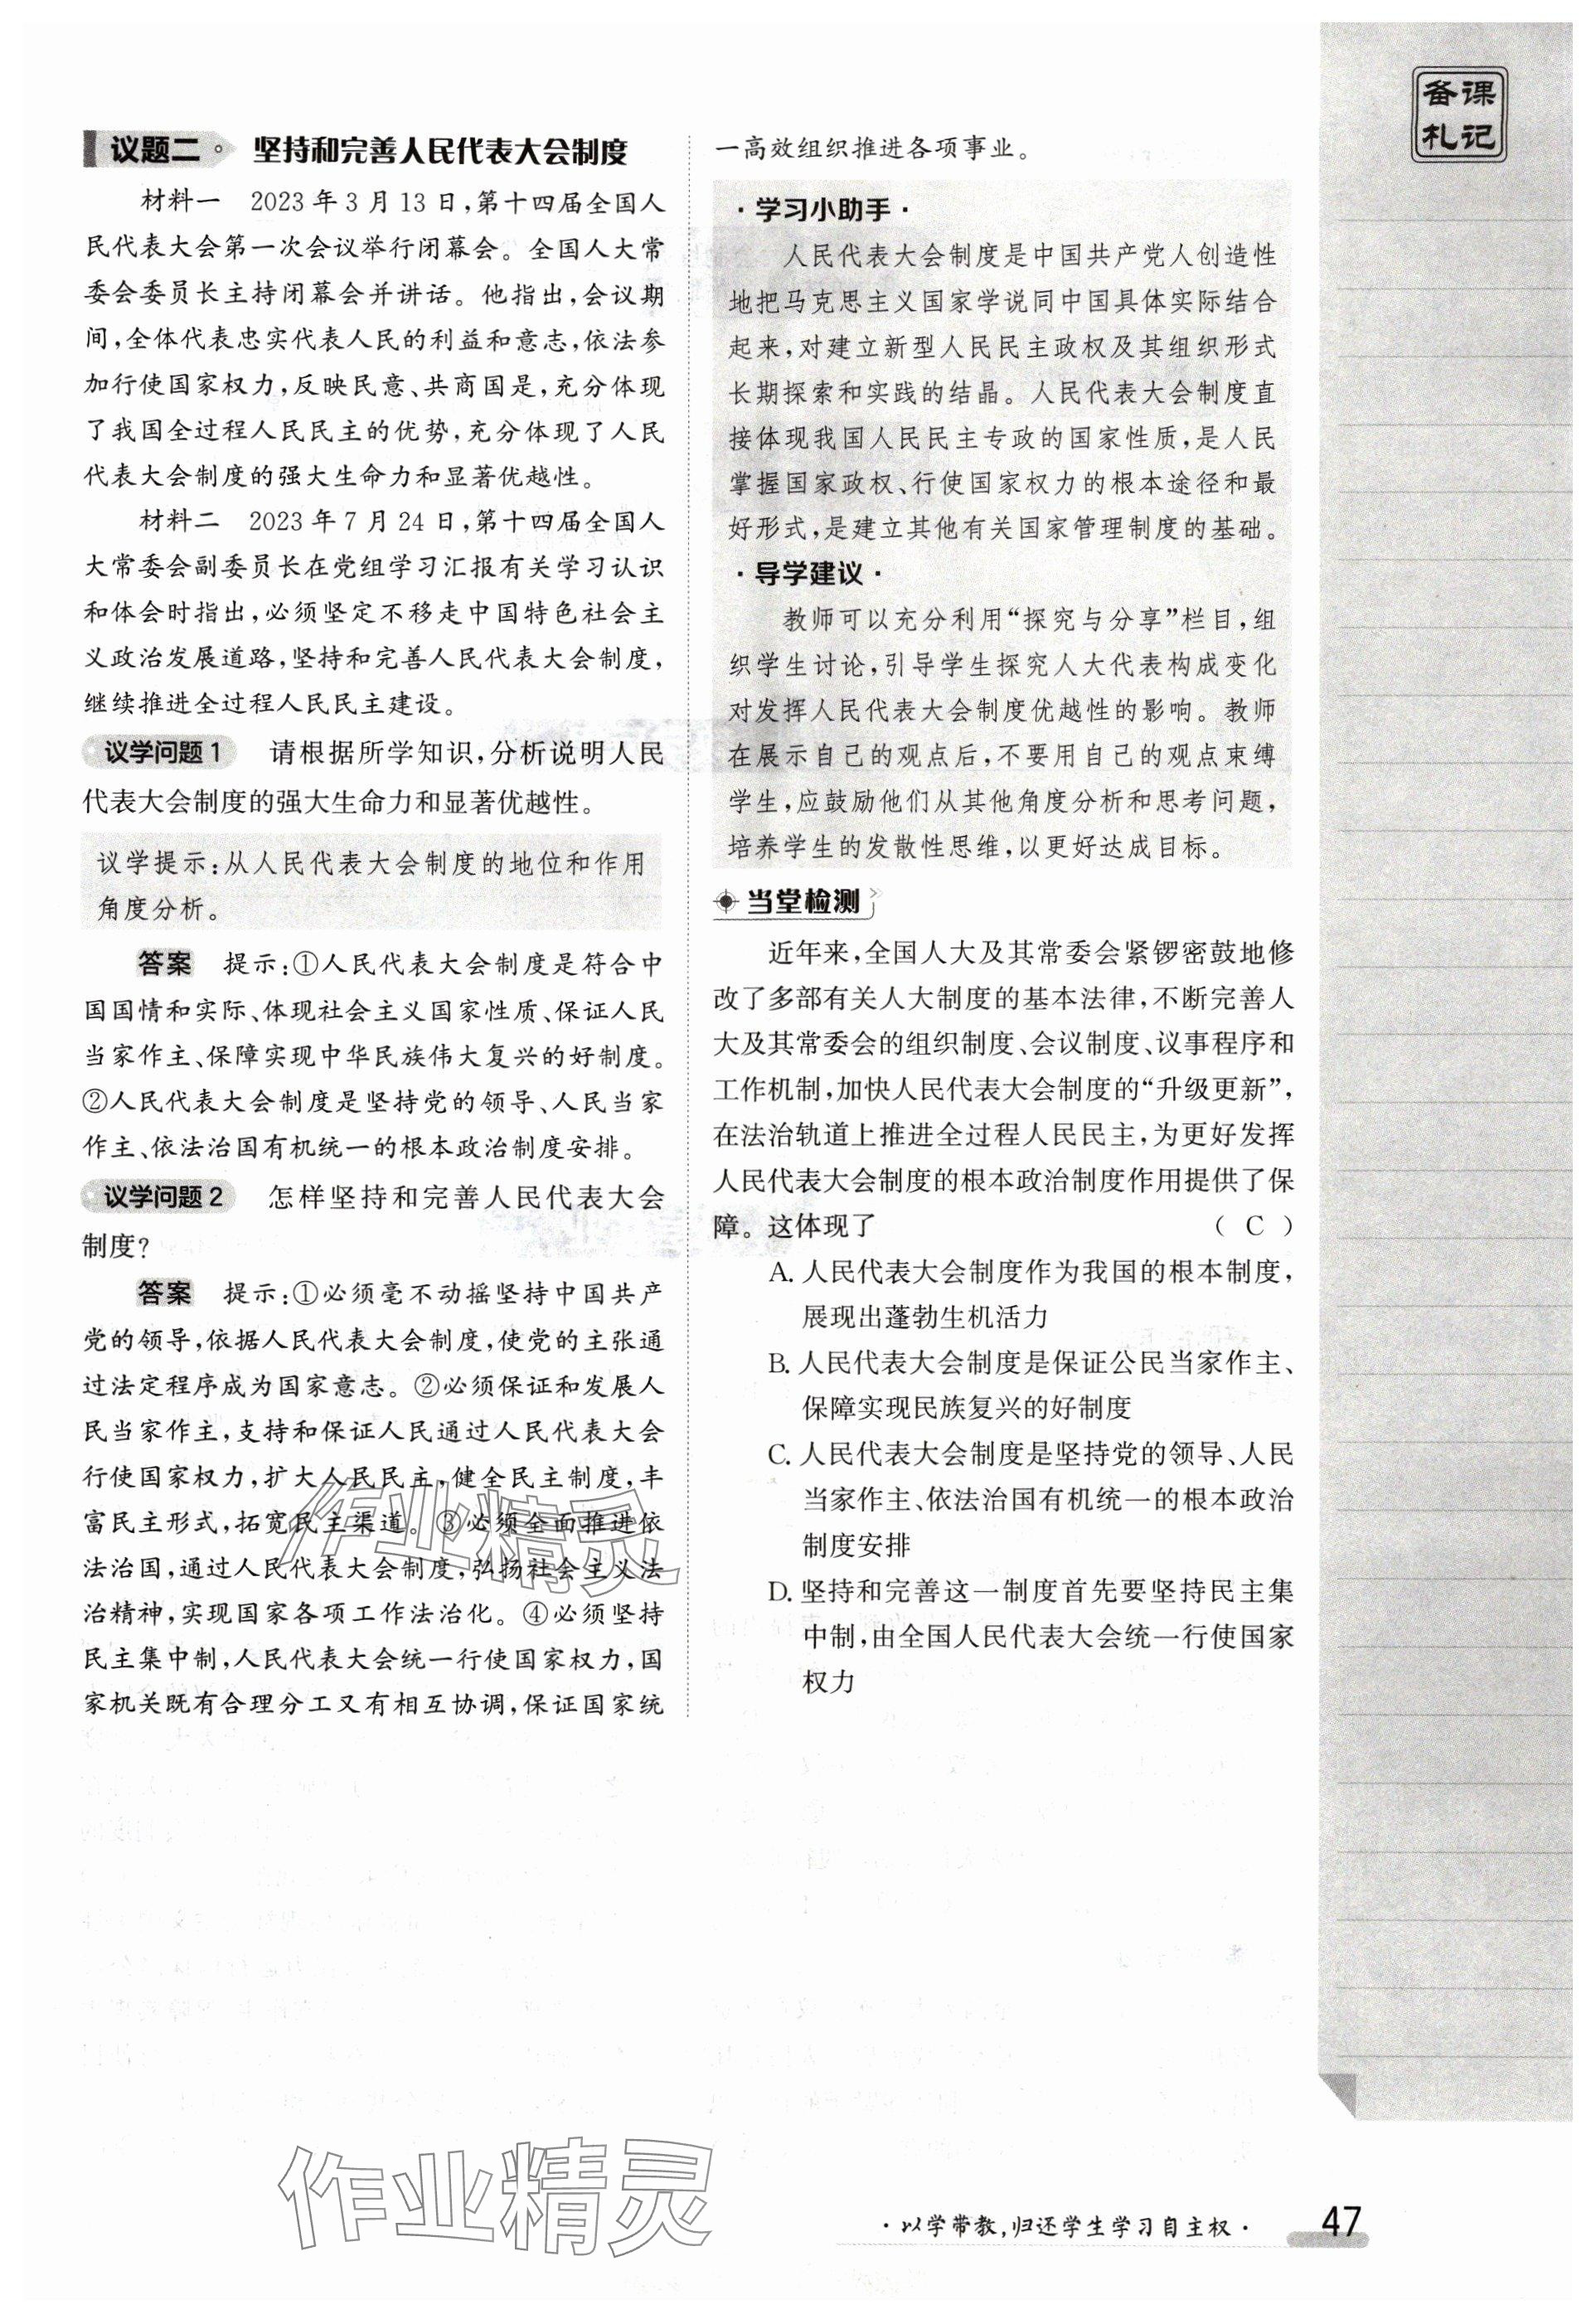 备课
札记
议题二 坚持和完善人民代表大会制度
材料一 2023年3月13日,第十四届全国人
民代表大会第一次会议举行闭幕会。全国人大常
委会委员长主持闭幕会并讲话。他指出,会议期
间,全体代表忠实代表人民的利益和意志,依法参
加行使国家权力,反映民意、共商国是,充分体现
了我国全过程人民民主的优势,充分体现了人民
代表大会制度的强大生命力和显著优越性。
材料二 2023年7月24日,第十四届全国人
大常委会副委员长在党组学习汇报有关学习认识
和体会时指出,必须坚定不移走中国特色社会主
义政治发展道路,坚持和完善人民代表大会制度,
继续推进全过程人民民主建设。
议学问题1 请根据所学知识,分析说明人民
代表大会制度的强大生命力和显著优越性。
议学提示:从人民代表大会制度的地位和作用
角度分析。
答案 提示:①人民代表大会制度是符合中
国国情和实际、体现社会主义国家性质、保证人民
当家作主、保障实现中华民族伟大复兴的好制度。
②人民代表大会制度是坚持党的领导、人民当家
作主、依法治国有机统一的根本政治制度安排。
议学问题2 怎样坚持和完善人民代表大会
制度?
答案 提示:①必须毫不动摇坚持中国共产
党的领导,依据人民代表大会制度,使党的主张通
过法定程序成为国家意志。②必须保证和发展人
民当家作主,支持和保证人民通过人民代表大会
行使国家权力,扩大人民民主,健全民主制度,丰
富民主形式,拓宽民主渠道。③必须全面推进依
法治国,通过人民代表大会制度,弘扬社会主义法
治精神,实现国家各项工作法治化。④必须坚持
民主集中制,人民代表大会统一行使国家权力,国
家机关既有合理分工又有相互协调,保证国家统
一高效组织推进各项事业。
·学习小助手·
人民代表大会制度是中国共产党人创造性
地把马克思主义国家学说同中国具体实际结合
起来,对建立新型人民民主政权及其组织形式
长期探索和实践的结晶。人民代表大会制度直
接体现我国人民民主专政的国家性质,是人民
掌握国家政权、行使国家权力的根本途径和最
好形式,是建立其他有关国家管理制度的基础。
·导学建议·
教师可以充分利用“探究与分享”栏目,组
织学生讨论,引导学生探究人大代表构成变化
对发挥人民代表大会制度优越性的影响。教师
在展示自己的观点后,不要用自己的观点束缚
学生,应鼓励他们从其他角度分析和思考问题,
培养学生的发散性思维,以更好达成目标。
当堂检测
近年来,全国人大及其常委会紧锣密鼓地修
改了多部有关人大制度的基本法律,不断完善人
大及其常委会的组织制度、会议制度、议事程序和
工作机制,加快人民代表大会制度的“升级更新”,
在法治轨道上推进全过程人民民主,为更好发挥
人民代表大会制度的根本政治制度作用提供了保
障。这体现了 ( C )
A. 人民代表大会制度作为我国的根本制度,
展现出蓬勃生机活力
B. 人民代表大会制度是保证公民当家作主、
保障实现民族复兴的好制度
C. 人民代表大会制度是坚持党的领导、人民
当家作主、依法治国有机统一的根本政治
制度安排
D. 坚持和完善这一制度首先要坚持民主集
中制,由全国人民代表大会统一行使国家
权力
作业精灵
作业精灵
·以学带教,归还学生学习自主权·
47